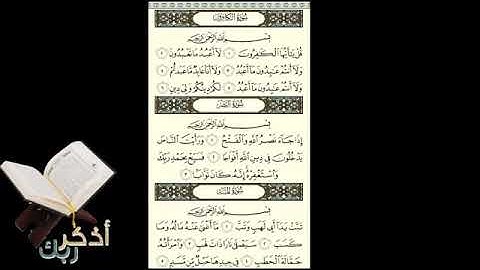 سُورَةُ الكَافِرُونَ
بِسْمِ اللَّهِ الرَّحْمَٰنِ الرَّحِيمِ
قُلْ يَا أَيُّهَا الْكَافِرُونَ ١ لَا أَعْبُدُ مَا تَعْبُدُونَ ٢
وَلَا أَنْتُمْ عَابِدُونَ مَا أَعْبُدُ ٣ وَلَا أَنَا عَابِدٌ مَا عَبَدْتُمْ ٤
وَلَا أَنْتُمْ عَابِدُونَ مَا أَعْبُدُ ٥ لَكُمْ دِينُكُمْ وَلِيَ دِينِ ٦
سُورَةُ النَّصْرِ
بِسْمِ اللَّهِ الرَّحْمَٰنِ الرَّحِيمِ
إِذَا جَاءَ نَصْرُ اللَّهِ وَالْفَتْحُ ١ وَرَأَيْتَ النَّاسَ
يَدْخُلُونَ فِي دِينِ اللَّهِ أَفْوَاجًا ٢ فَسَبِّحْ بِحَمْدِ رَبِّكَ
وَاسْتَغْفِرْهُ إِنَّهُ كَانَ تَوَّابًا ٣
سُورَةُ المَسَدِ
بِسْمِ اللَّهِ الرَّحْمَٰنِ الرَّحِيمِ
تَبَّتْ يَدَا أَبِي لَهَبٍ وَتَبَّ ١ مَا أَغْنَى عَنْهُ مَالُهُ وَمَا
كَسَبَ ٢ سَيَصْلَى نَارًا ذَاتَ لَهَبٍ ٣ وَامْرَأَتُهُ
حَمَّالَةَ الْحَطَبِ ٤ فِي جِيدِهَا حَبْلٌ مِنْ مَسَدٍ ٥
أذكر
ربك